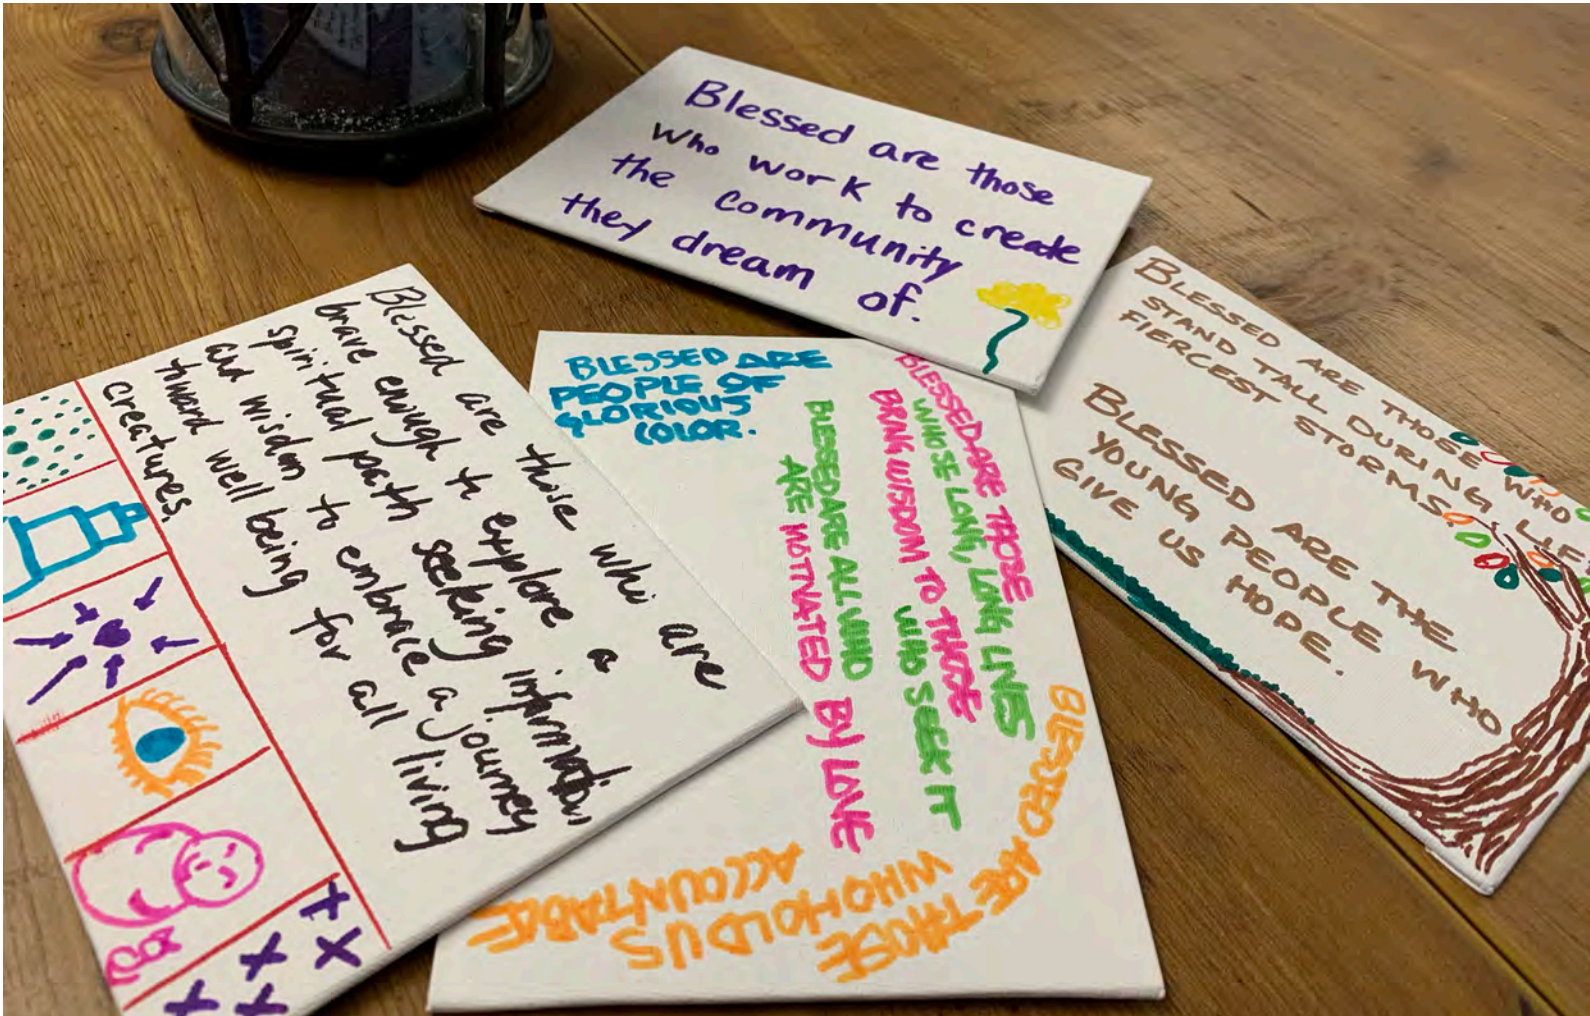 Blessed are those
who work to create
the Community
they dream of.
Blessed are those who are
brave enough to explore a
spiritual path seeking information
and wisdom to embrace a journey
toward well being for all living
creatures.
BLESSED ARE
PEOPLE OF
GLORIOUS
COLOR.
BLESSED ARE THOSE
WHOSE LONG, LONG LIVES
BRING WISDOM TO THOSE
WHO SEEK IT
BLESSED ARE ALL WHO
ARE MOTIVATED BY LOVE
BLESSED ARE THOSE
WHO HOLD US
ACCOUNTABLE
BLESSED ARE THOSE WHO
STAND TALL DURING LIFE'S
FIERCEST STORMS.
BLESSED ARE THE
YOUNG PEOPLE WHO
GIVE US HOPE.